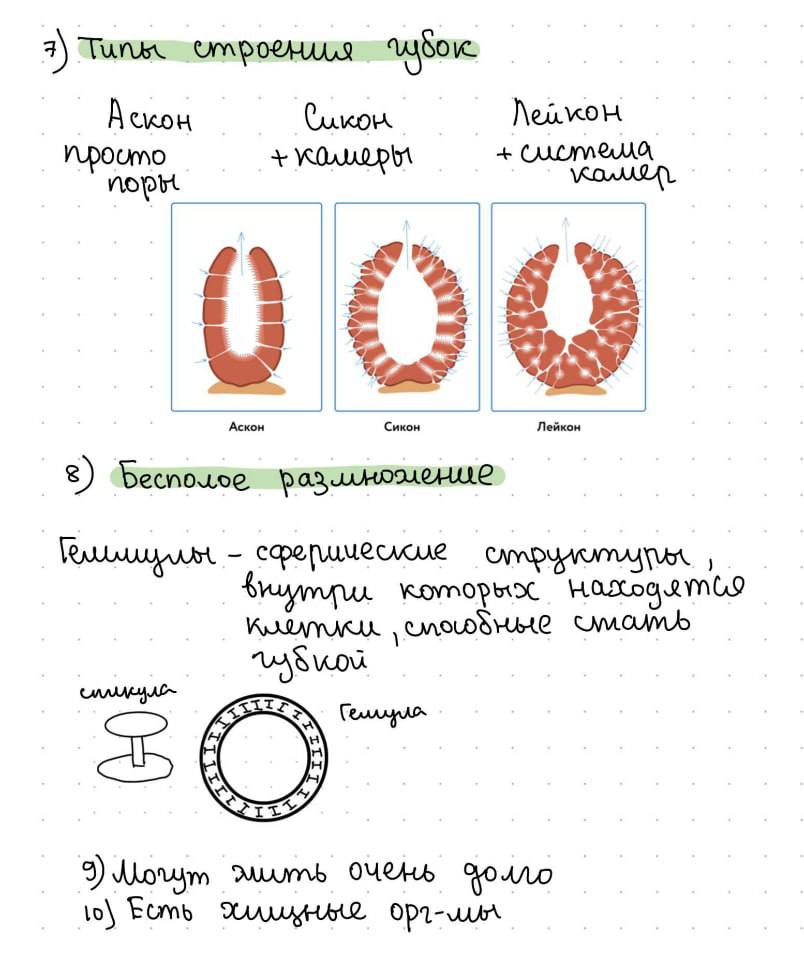 7) Типы строения губок
Аскон
просто
поры
Сикон
+ камеры
Лейкон
+ система
камер
Аскон
Сикон
Лейкон
8) Бесполое размножение
Геммулы – сферические структуры,
внутри которых находятся
клетки, способные стать
губкой
спикула
Гемула
9) Могут жить очень долго
10) Есть хищные орг-мы